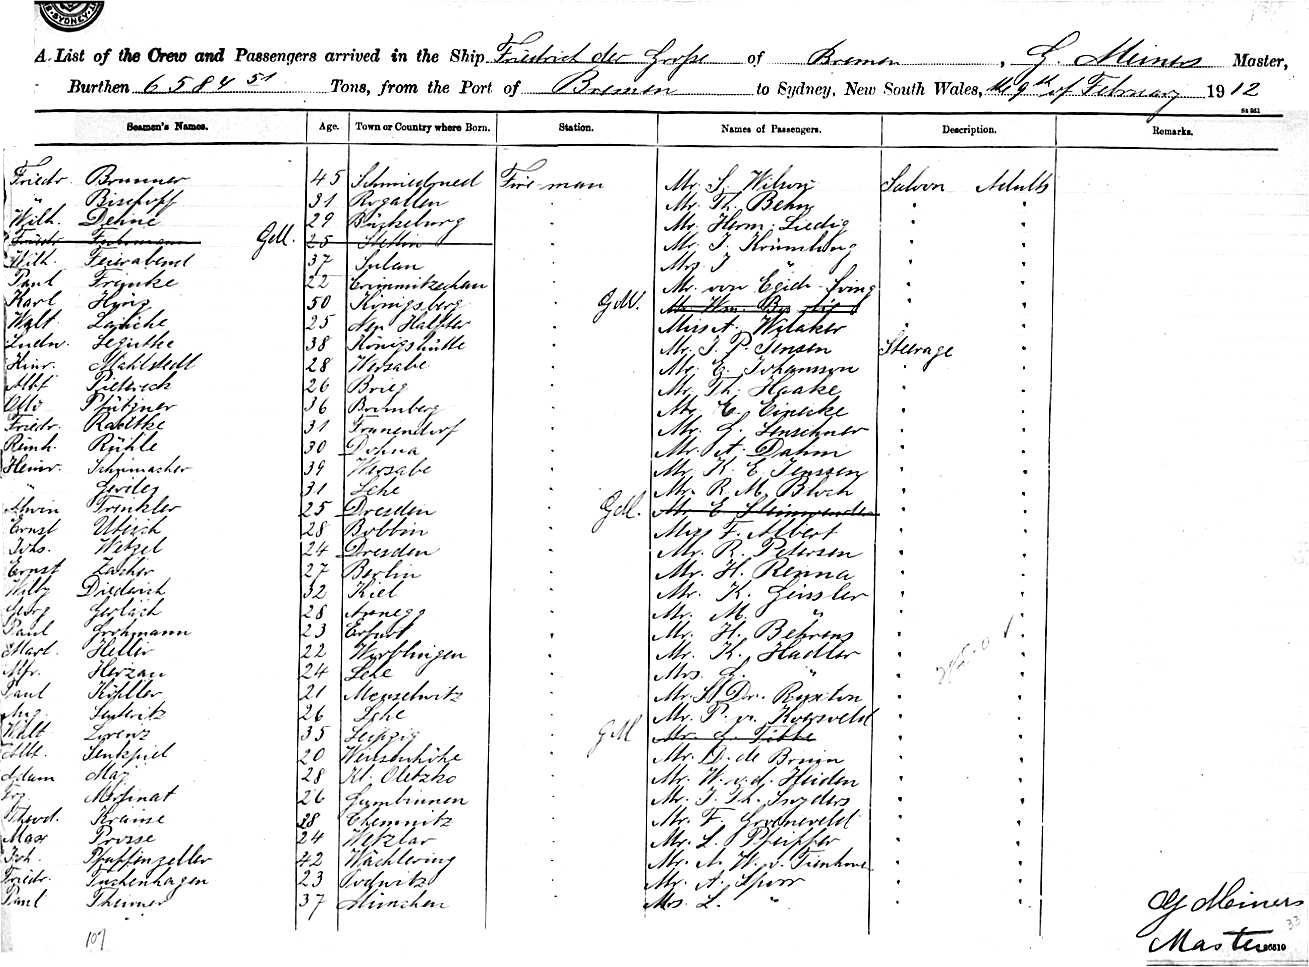 SYDNEY
A. List of the Crew and Passengers arrived in the Ship Friedrich der Grosse of Bremen, G. Meiners Master,
Burthen 6584 51 Tons, from the Port of Bremen to Sydney, New South Wales, the 9th of February 1912
Seamen's Names. Age. Town or Country where Born. Station. Names of Passengers. Description. Remarks.
Friedr. Brunner 45 Fireman Mr. S. Wilson Saloon Adults
" Bischoff 31 Rogallen Mr. Th. Behn
Wilh. Dehne 29 Bückeburg Mr. Herm. Liedig
Friedr. 25 Stettin G.M. Mr. J. Krümling
Wilh. Feierabend 37 Sulau Mrs J "
Paul Franke 22 Crimmitzschau Mr. von Egidy
Karl 50 Königsberg G.M. Mr. Wm.
Walt. 25 Miss A. Witaker
Ludw. 38 Königshütte Mr. J. P. Jensen Steerage
Hinr. Mahlstedt 28 Wersabe Mr. E. Johansson
Albt. 26 Brieg Mr. Th. Haake
Otto Pfützner 36 Bromberg Mr. E. Einecke
Friedr. Radtke 31 Mr. G.
Reinh. Rühle 30 Dohna Mr. A. Dahm
Heinr. Schumacher 39 Wersabe Mr. K. E. Jenssen
" 31 Lehe Mr. R. M. Bloch
Alwin Trinkler 25 Dresden G.M. Mr. E
Ernst Ulrich 28 Bobbin Miss F. Albert
Johs. Wetzel 24 Dresden Mr. R. Petersen
Ernst Zacher 27 Berlin Mr. H. Renna
Willy Diederich 32 Kiel Mr. K. Geissler
Georg Gerlach 28 Arnegg Mr. M. "
Paul Grohmann 23 Erfurt Mr. H. Behrens
Mart. Heller 22 Mr. K. Hadler
Alfr. Herzau 24 Lehe Mrs. G. "
Paul Köhler 21 Meuselwitz Mr. H. Dr.
Aug. 26 Lehe Mr. P. v.
Walt. Lorenz 35 Leipzig G.M. Mr. G. Tibbe
Albt. Senkpiel 20 Weissenhöhe Mr. D. de Bruin
Adam May 28 Kl. Oletzko Mr. W. v. d. Heiden
26 Gumbinnen Mr. J. Th. Snyders
Theod. Krause 28 Chemnitz Mr. F. Groeneveld
Max Prosse 24 Wetzlar Mr. L. Pfeiffer
Joh. Pfaffenzeller 42 Wächtering Mr. A. W. v. Tienhoven
Friedr. Tuchenhagen 23 Mr. A. Sporr
Paul Theimer 37 München Mrs. L. "
G Meiners
Master
107
33